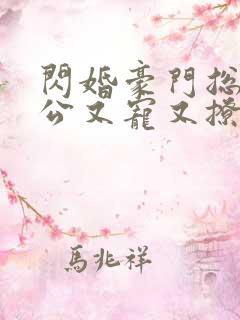 閃婚豪門总
公又寵又撩
馬兆祥